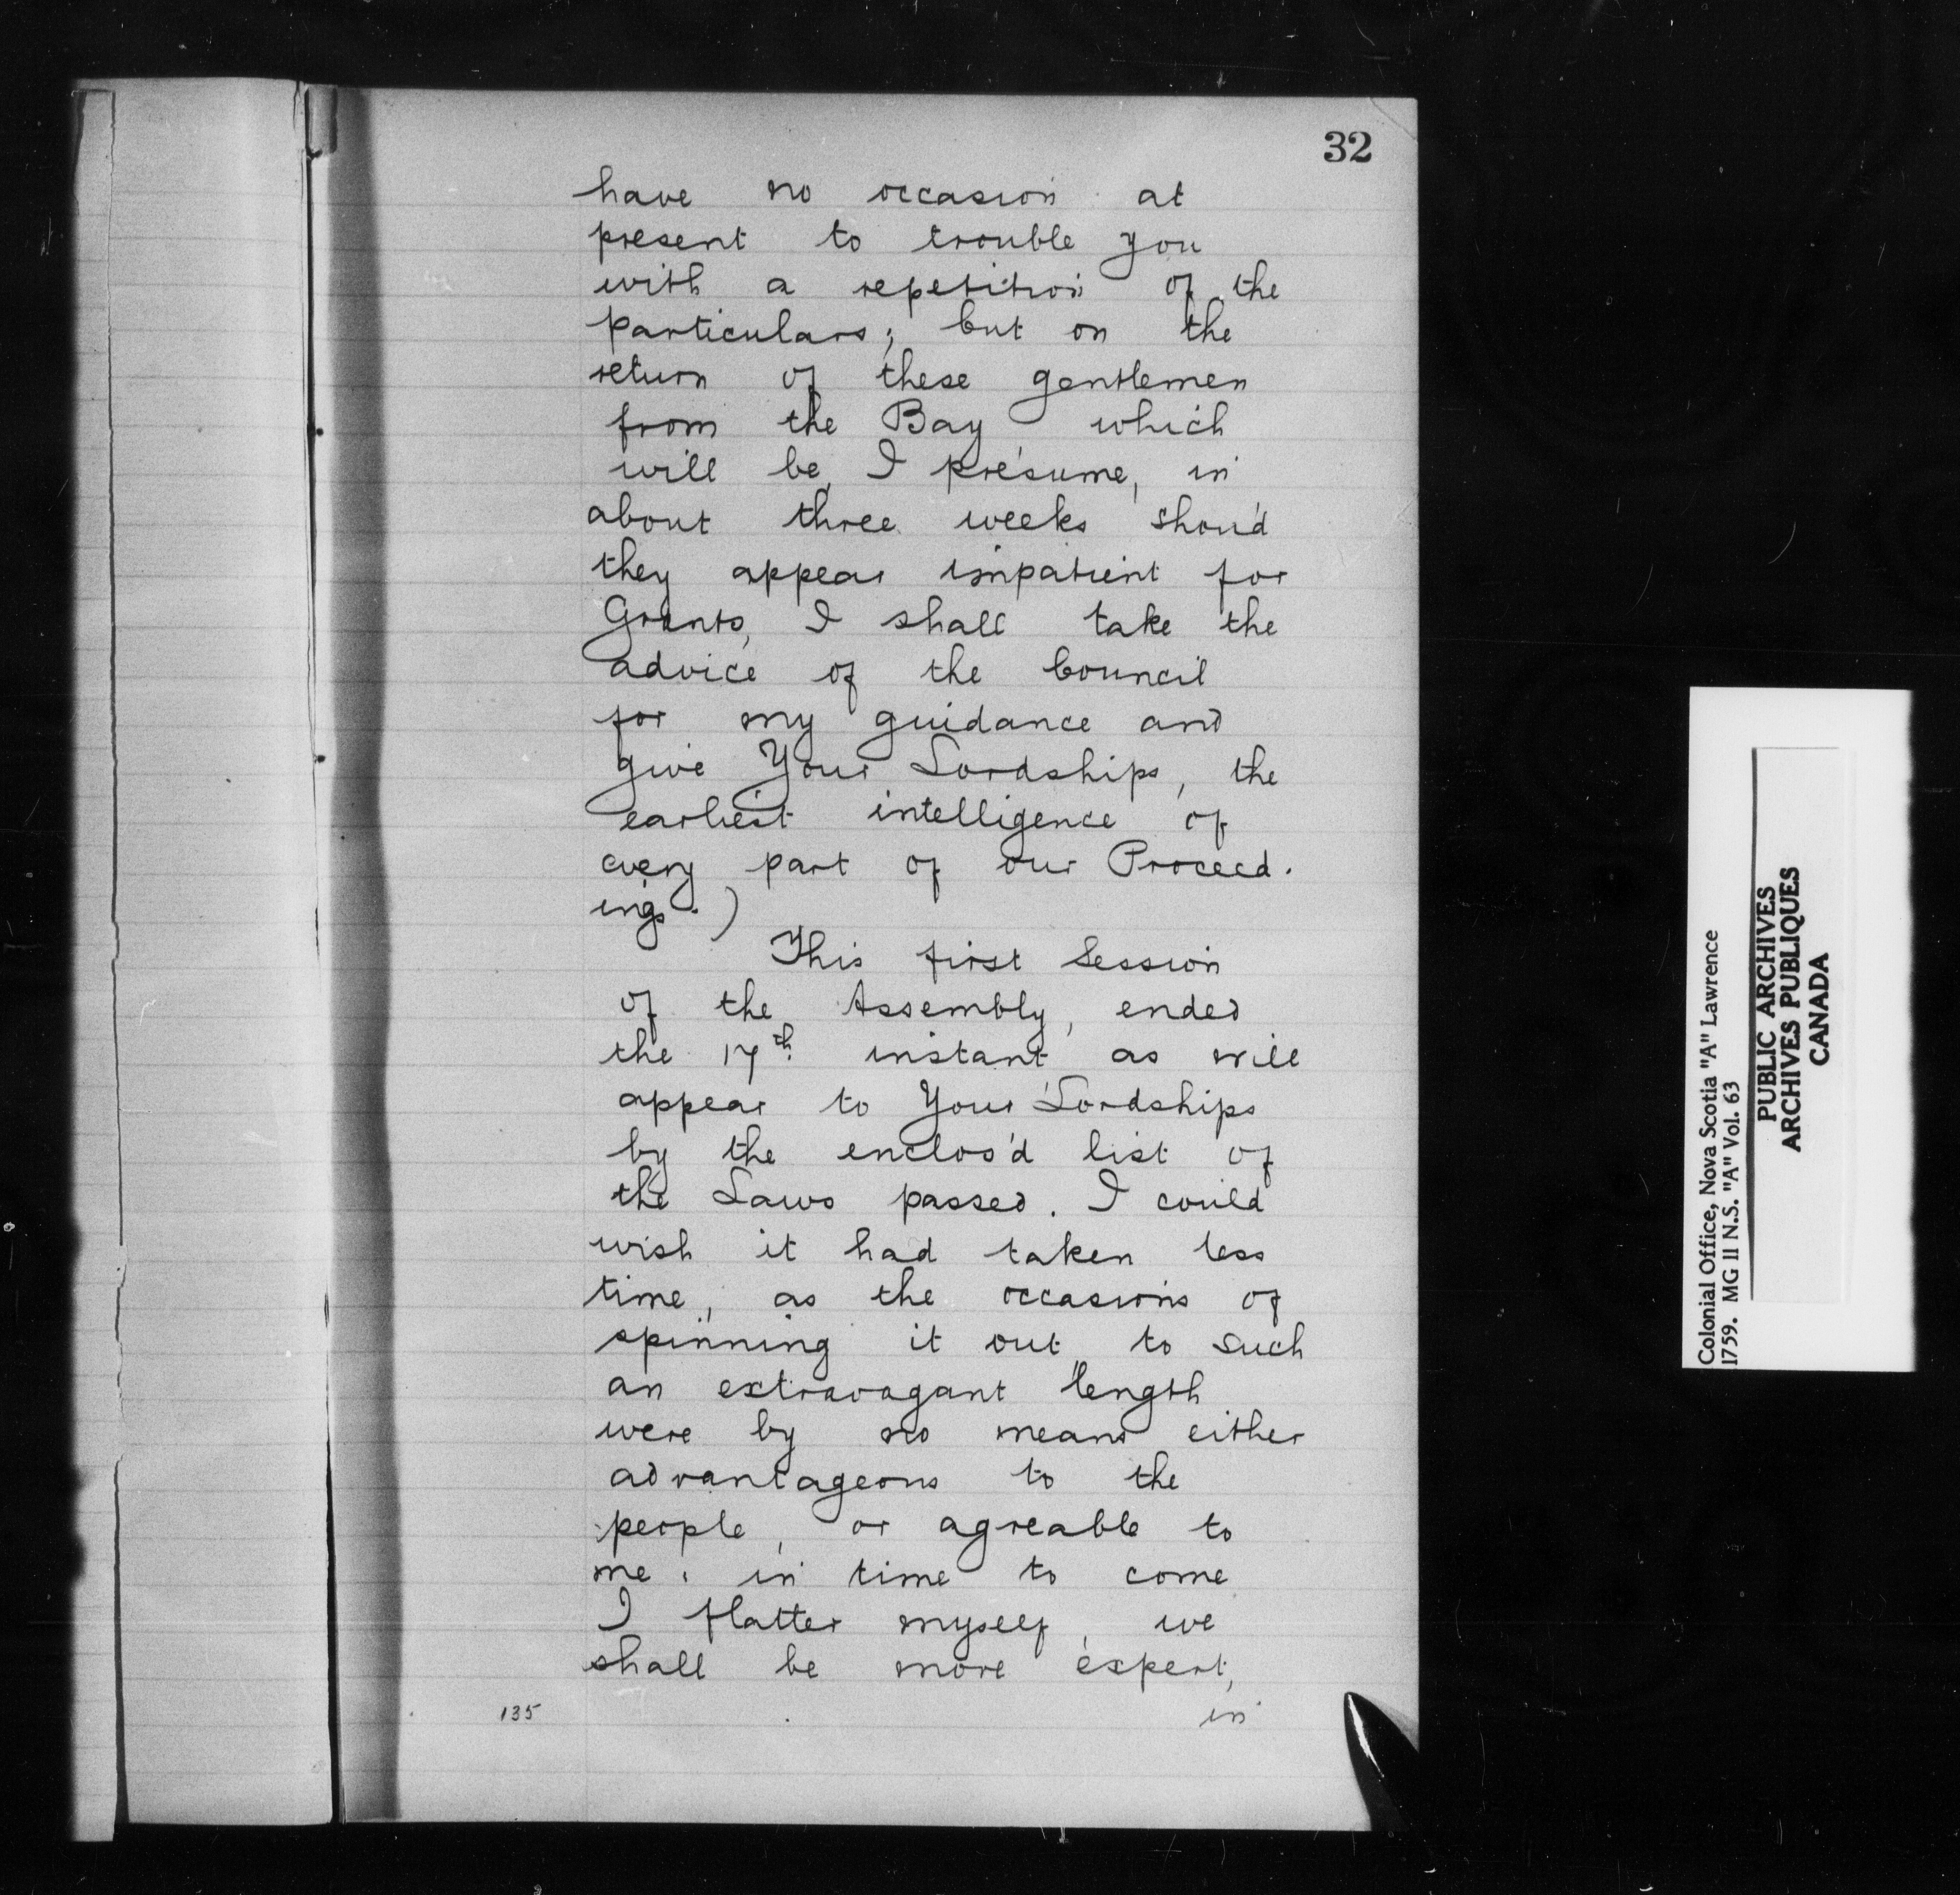 32
have no occasion at
present to trouble you
with a repetition of the
particulars; but on the
return of these gentlemen
from the Bay which
will be, I presume, in
about three weeks shou'd
they appear impatient for
Grants, I shall take the
advice of the Council
for my guidance and
give Your Lordships, the
earliest intelligence of
every part of our Proceed.
ings.)
This first Session
of the Assembly, ended
the 17th instant as will
appear to Your Lordships
by the enclos'd list of
the Laws passed. I could
wish it had taken less
time, as the occasions of
spinning it out to such
an extravagant length
were by no means either
advantageous to the
people, or agreable to
me. in time to come
I flatter myself, we
shall be more expert,
135
in
Colonial Office, Nova Scotia "A" Lawrence
1759. MG 11 N.S. "A" Vol. 63
PUBLIC ARCHIVES
ARCHIVES PUBLIQUES
CANADA